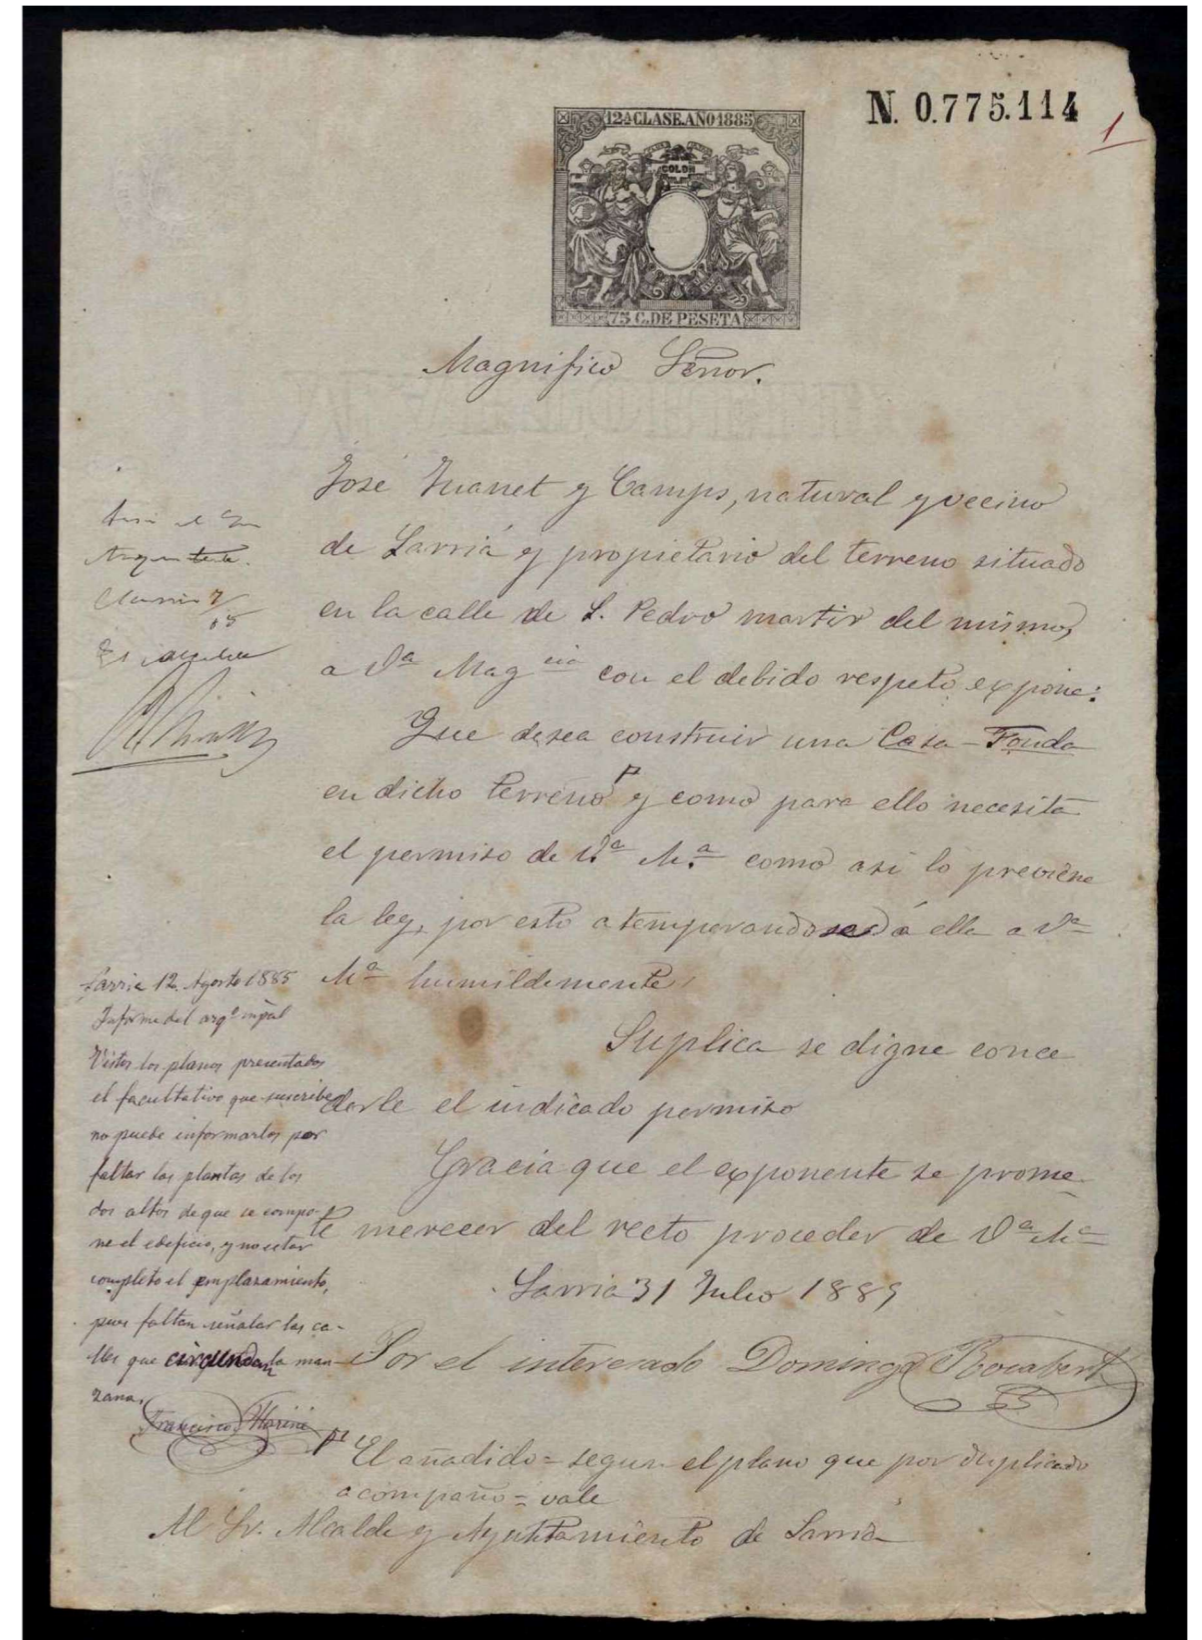 N. 0.775.114
1
12ª CLASE. AÑO 1885
COLON
75 C. DE PESETA
Magnifico Señor.
José Juanet y Camps, natural y vecino
de Sarriá y propietario del terreno situado
en la calle de S. Pedro martir del mismo,
a Vª Mag cia con el debido respeto expone:
Que desea construir una Casa-Fonda
en dicho terreno y como para ello necesita
el permiso de V.ª M.ª como asi lo previene
la ley, por esto atemperandose á ella a Vª
Mª humildemente
Suplica se digne conce
derle el indicado permiso
Gracia que el exponente se prome-
te merecer del recto proceder de Vª Mª
Sarria 31 Julio 1885
Por el interesado Domingo Rocabert
El añadido = segun el plano que por duplicado
acompaño = vale
Al Sr. Alcalde y Ayuntamiento de Sarriá
Sarria 12 Agosto 1885
Informe del arqº mpal
Vistos los planos presentados
el facultativo que suscribe
no puede informarlos por
faltar las plantas de los
dos altos de que se compo-
ne el edificio, y no estar
completo el emplazamiento,
pues faltan señalar las ca-
lles que circundan la man-
zana.
Francisco Mariné